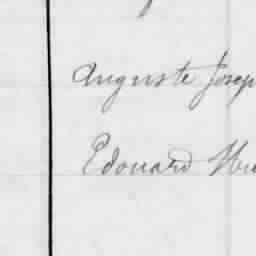 Auguste Josep
Edouard